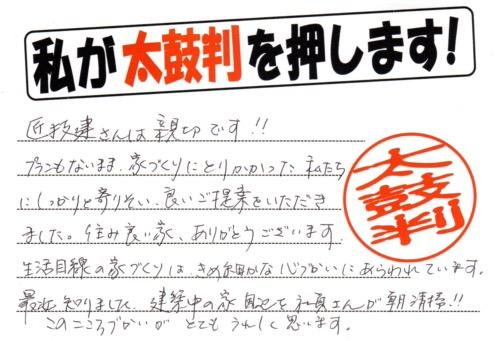 私が太鼓判を押します!
匠技建さんは親切です!!
プランもないまま、家づくりにとりかかった私たち
にしっかりと寄りそい、良いご提案をいただき
ました。住み良い家、ありがとうございます。
太鼓判
生活目線の家づくりは、きめ細かな心づかいにあらわれています。
最近知りました、建築中の家周辺を社員さんが朝清掃!!
このこころづかいがとてもうれしく思います。